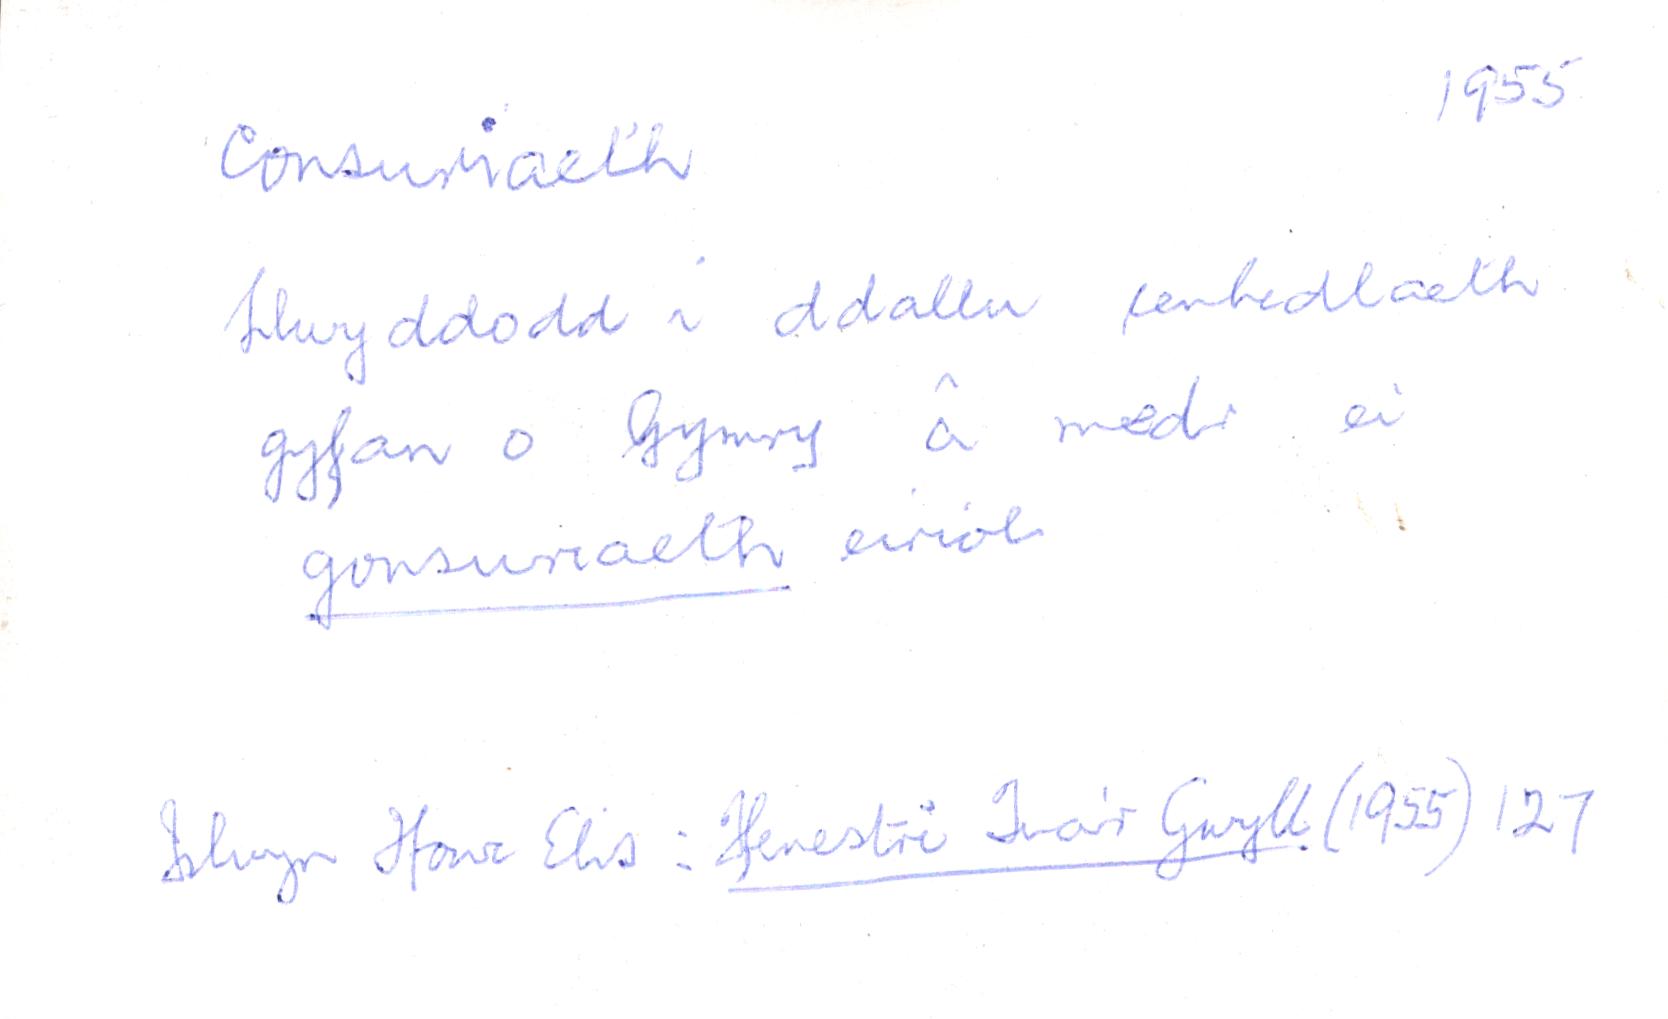 1955
Consuriaeth
Llwyddodd i ddallu cenhedlaeth
gyfan o Gymry â medr ei
gonsuriaeth eiriol
Islwyn Ffowc Elis: Ffenestri Tua'r Gwyll (1955) 127